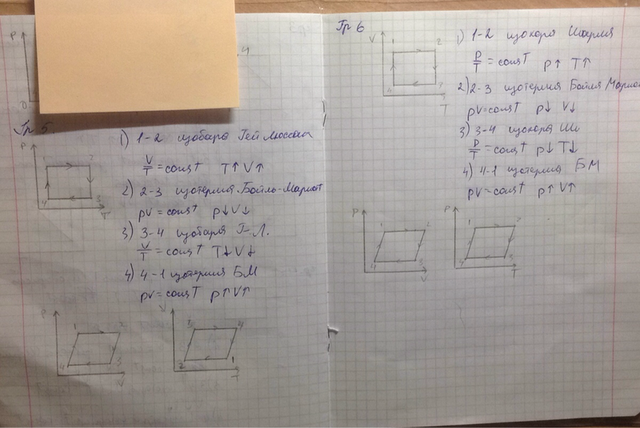 Гр 5
P
1
2
4
3
T
1) 1-2 изобара Гей Люссака
V/T = const T↑ V↑
2) 2-3 изотермия Бойля-Мариот
pV = const p↓ V↓
3) 3-4 изобара Г-Л.
V/T = const T↓ V↓
4) 4-1 изотермия БМ
pV = const p↑ V↑
P
1
2
4
3
V
V
3
4
2
1
T
Гр 6
V
1
2
T
1) 1-2 изохора Шарля
P/T = const p↑ T↑
2) 2-3 изотермия Бойля Мариот
pV = const p↓ V↓
3) 3-4 изохора Ш
P/T = const p↓ T↓
4) 4-1 изотермия БМ
pV = const p↑ V↑
P
1
2
4
3
V
P
1
2
4
3
T